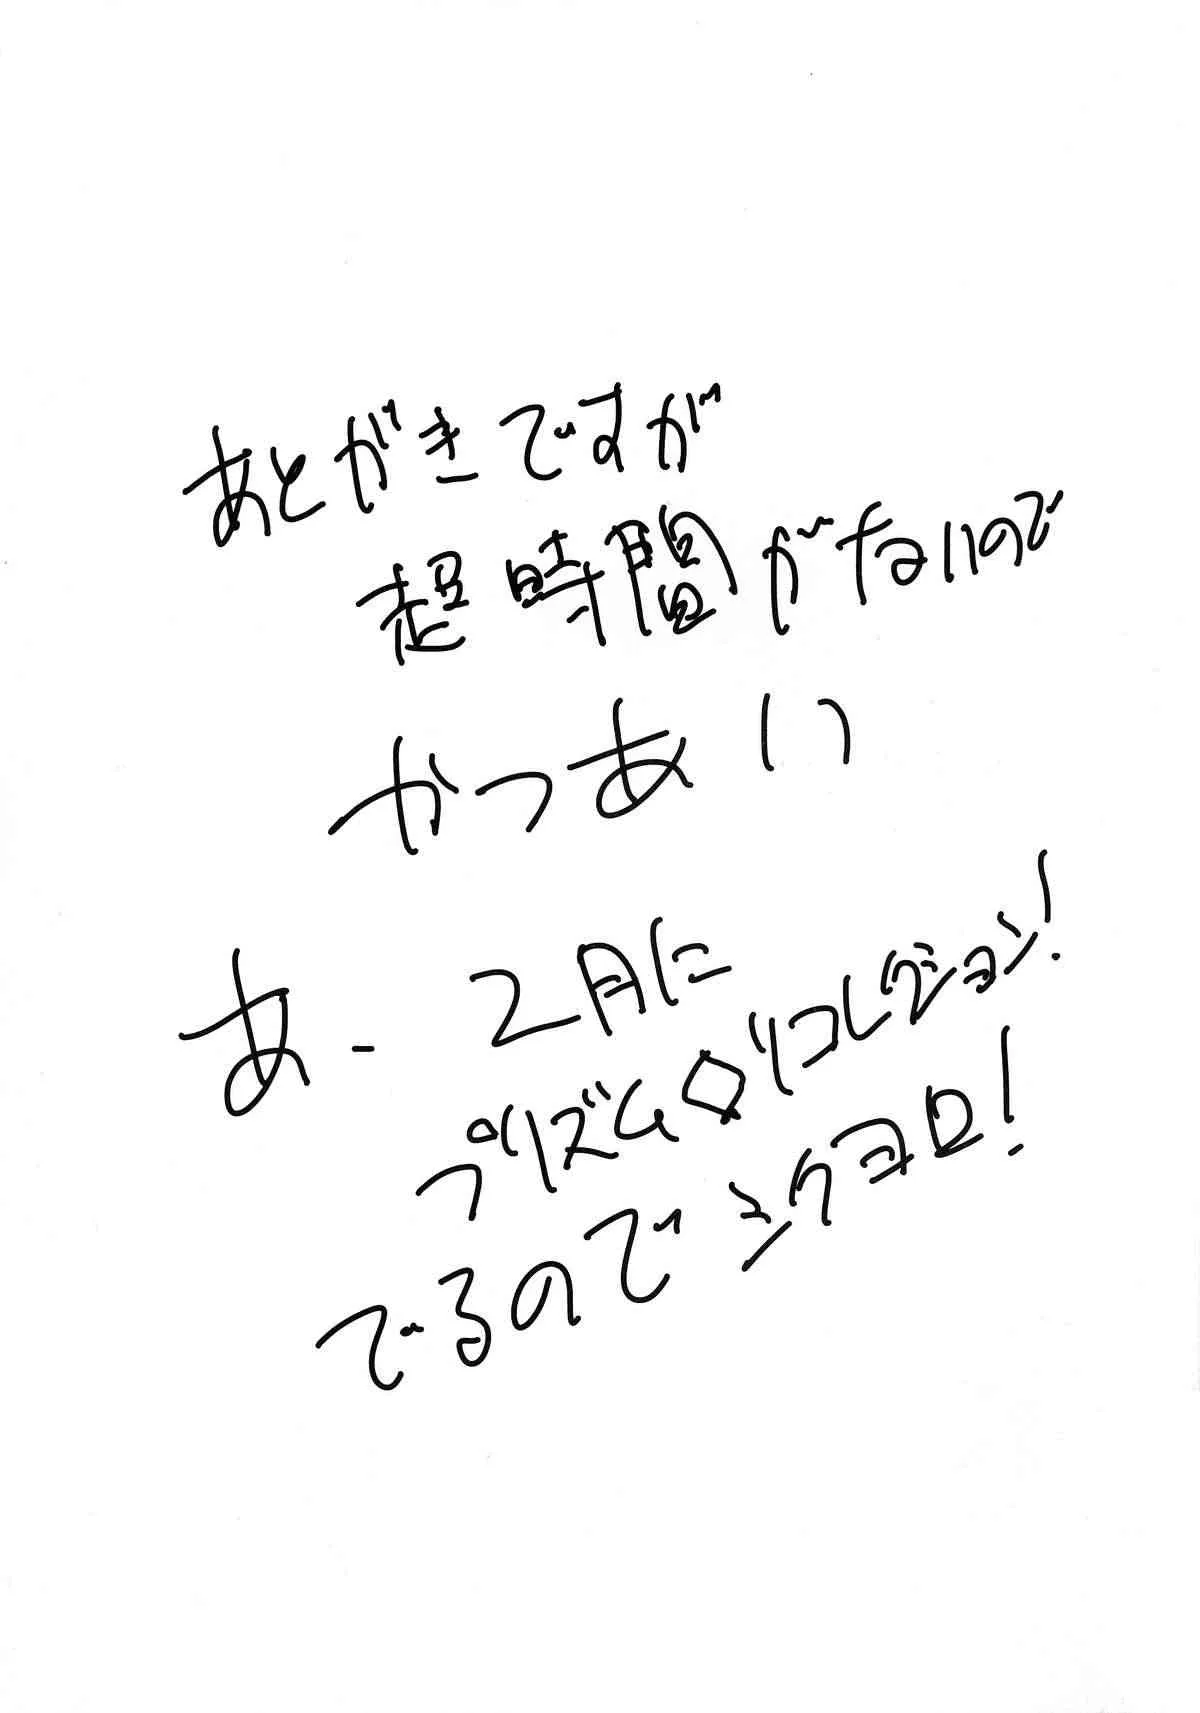 あとがきですが
超時間がないので
かつあい
あ、2月に
プリズム◇リコレクション!
でるのでヨロ!